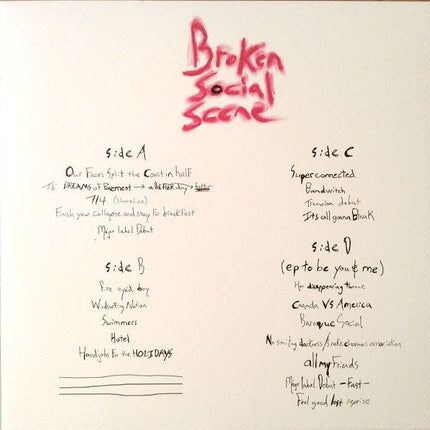 Broken
Social
Scene
Side A
Our Faces Split the Coast in half
Ibi DREAMS of Pavement → a better day →
7/4 (Shoreline)
Finish your collapse and stay for breakfast
Major label Debut
Side B
Fire eyed boy
Windsurfing Nation
Swimmers
Hotel
Handjobs For the HOLIDAYS
Side C
Superconnected
Bandwitch
Tremoloa debut
It's all gonna Break
Side D
(ep to be you & me)
Her disappearing theme
Canada VS America
Baroque Social
No smiling darkness/snake charmers association
all my Friends
Major label Debut -Fast-
Feel good lost reprise